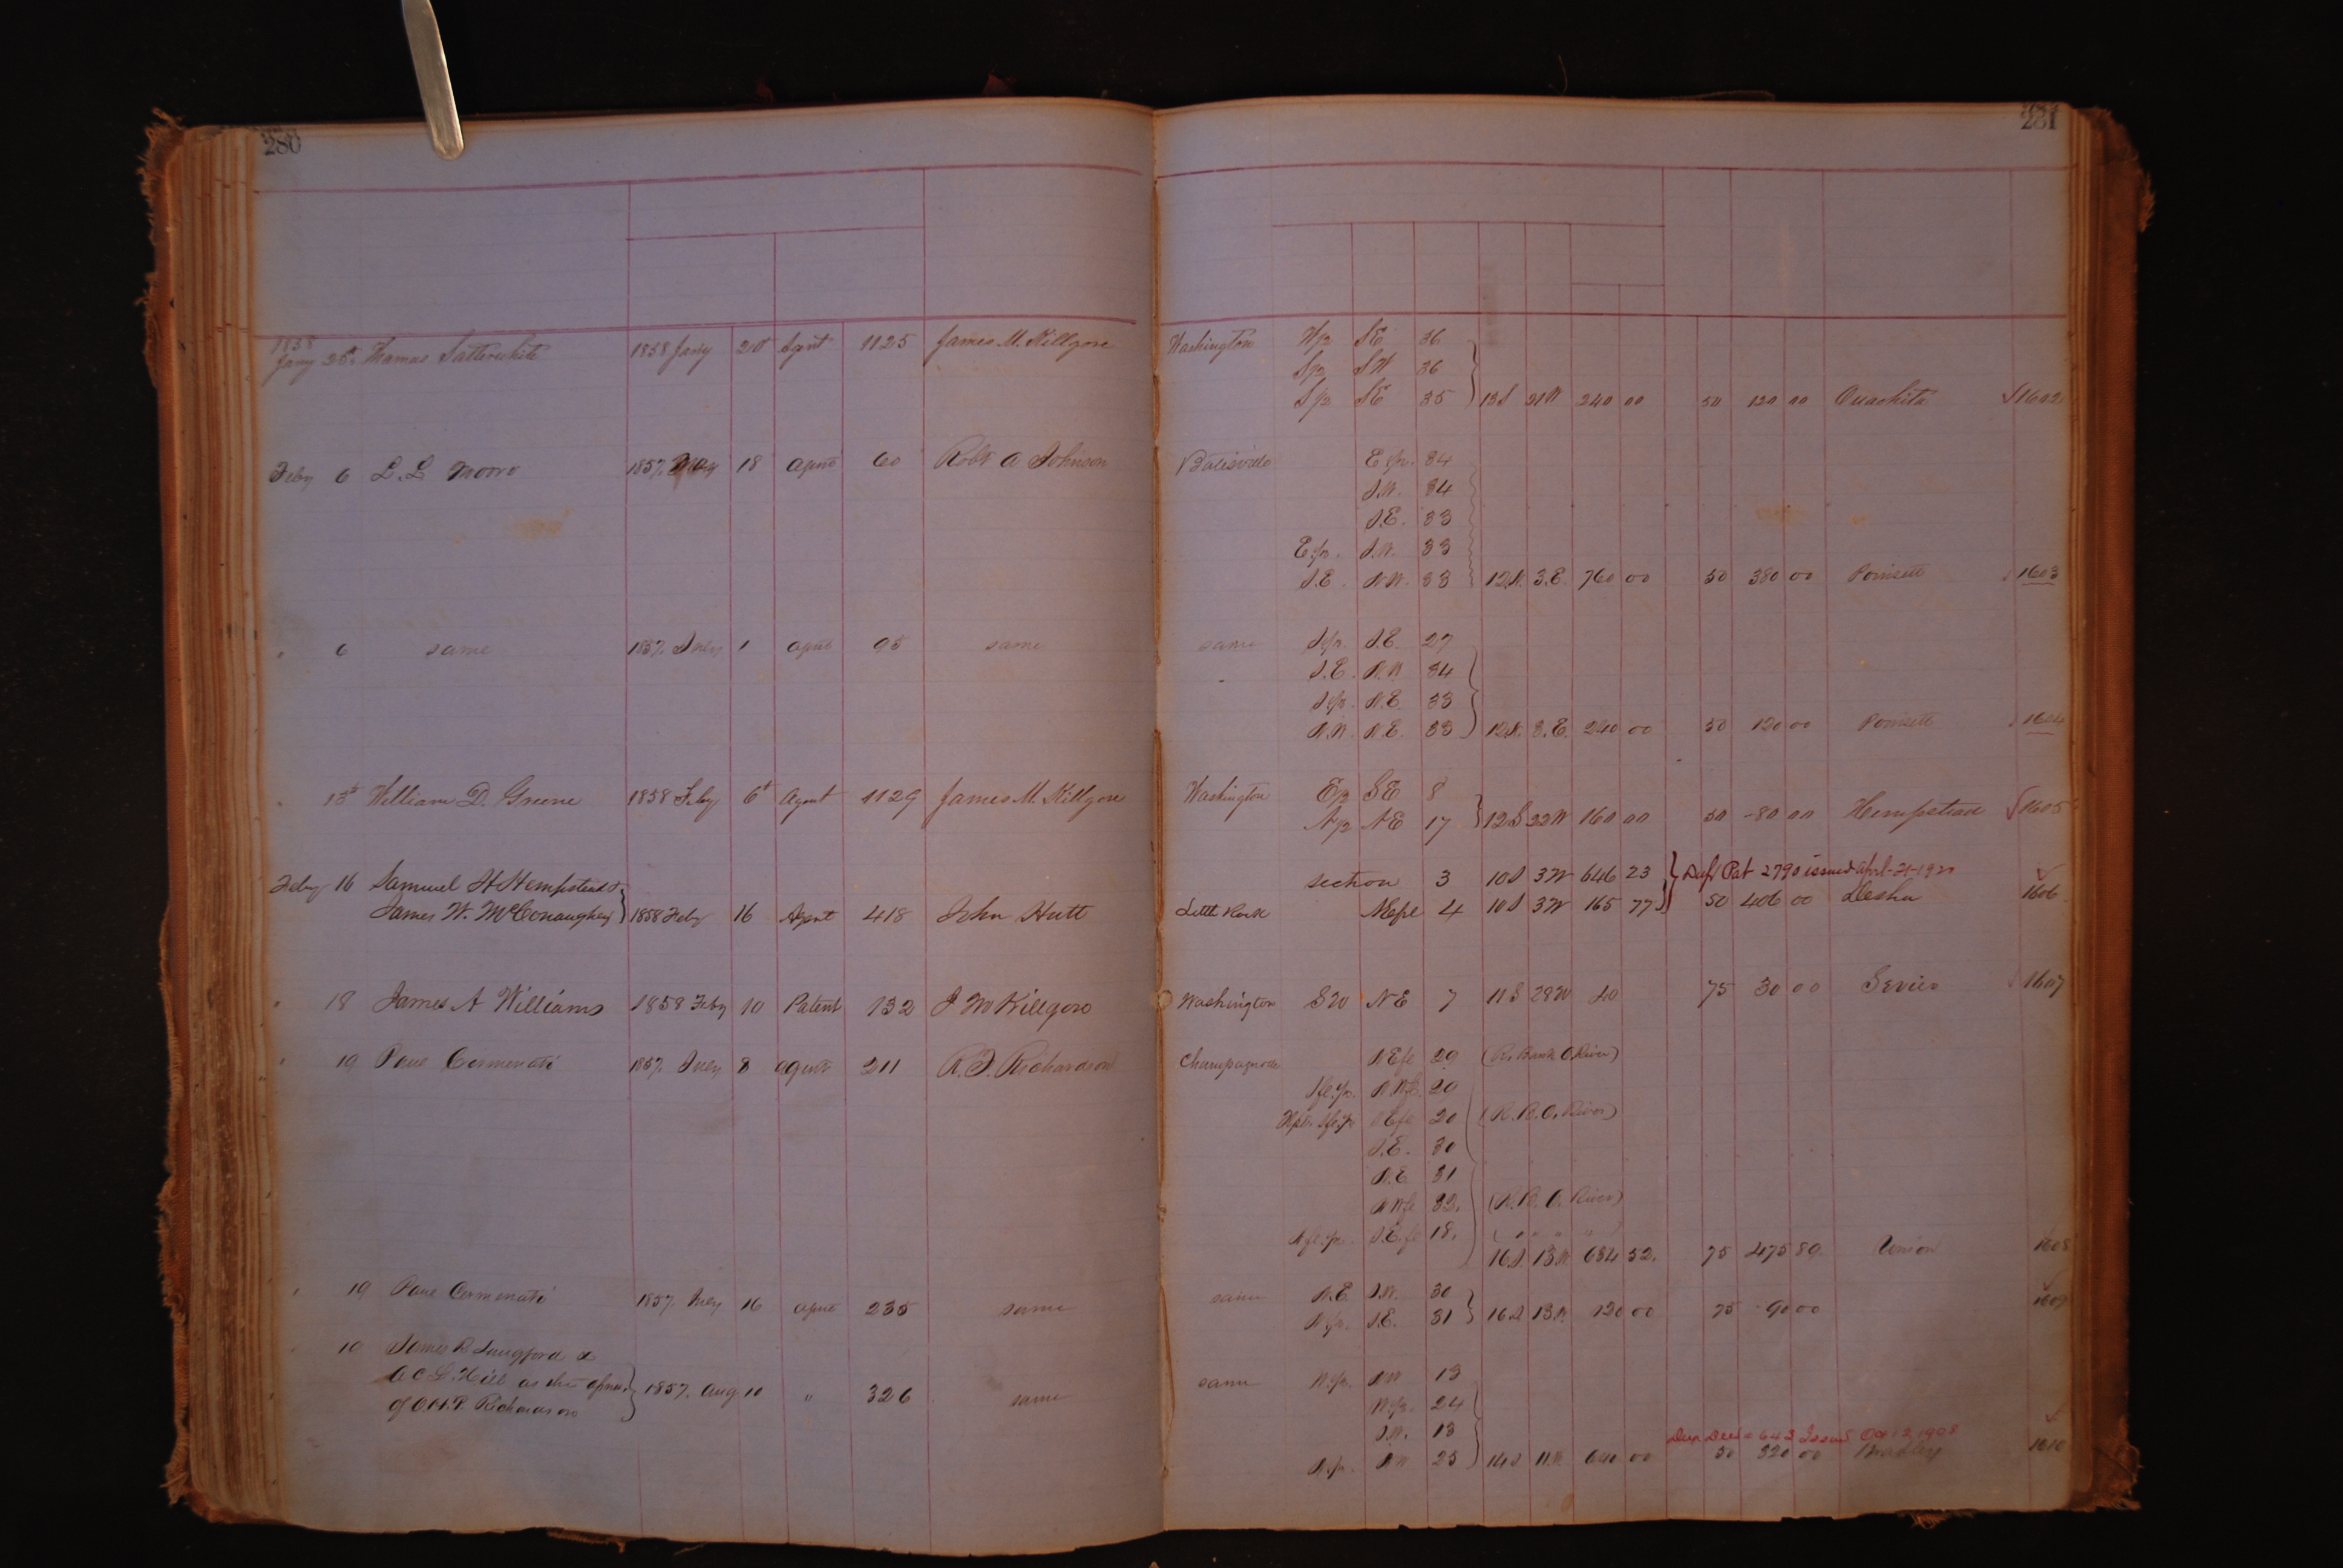 280
281
1858
Jany 25th Thomas Satterwhite 1858 Jany 20 Agent 1125 James M. Killgore Washington W/2 SE 36
S/2 SW 36
S/2 SE 35 13S 21W 240 00 50 120 00 Ouachita 1602
Feby 6 L. L Moore 1857 18 Agent 60 Robt A Johnson Batesville E/2 34
S.W. 34
S.E. 33
E/2 S.W. 33
S.E. N.W. 33 12N. 3.E. 760 00 50 380 00 Poinsett 1603
" 6 same 1857. July 1 Agent 95 same same S/2 S.E. 27
S.E. N.W. 34
S/2 N.E. 33
N.W. N.E. 33 12N. 3.E. 240 00 50 120 00 Poinsett 1604
" 13th William D. Greene 1858 Feby 6th Agent 1129 James M. Killgore Washington E/2 SE 8
N/2 NE 17 12S 22W 160 00 50 80 00 Hempstead 1605
Feby 16 Samuel H Hempstead & section 3 10S 3W 646 23 Dup Pat 2790 issued Apl-21-19
James W. McConaughey 1858 Feby 16 Agent 418 John Hutt Little Rock NEfrl 4 10S 3W 165 77 50 406 00 Desha 1606
" 18 James A Williams 1858 Feby 10 Patent 132 J M Killgore Washington SW NE 7 11S 29W 40 75 30 00 Sevier 1607
" 19 Paul Cermenati 1857. July 8 Agent 211 R. F. Richardson Champagnole NEfl 29 (R. Bank O. River)
Sfl./2 NWfl. 20
Sfl./2 20 (R. B. O. River)
S.E. 30
N.E. 31
NWfl 32. (R. B. O. River)
Nfl./2 S.E.fl 18. ( " " " " )
16S. 13W. 634 52. 75 475 89 Union 1608
" 19 Paul Cermenati 1857. July 16 Agent 235 same same N.E. S.W. 30
N/2 S.E. 31 16S 13W. 120 00 75 90 00 1609
" 19 James R Langford &
A C L. Hill as the
of Richardson 1857. Aug 10 " 326 same same W/2 NW 13
W/2 24
S.W. 13
N/2 NW 25 14S 11W. 640 00 50 320 00 Bradley 1610
Dup Deed 643 Issued Oct 12 1908